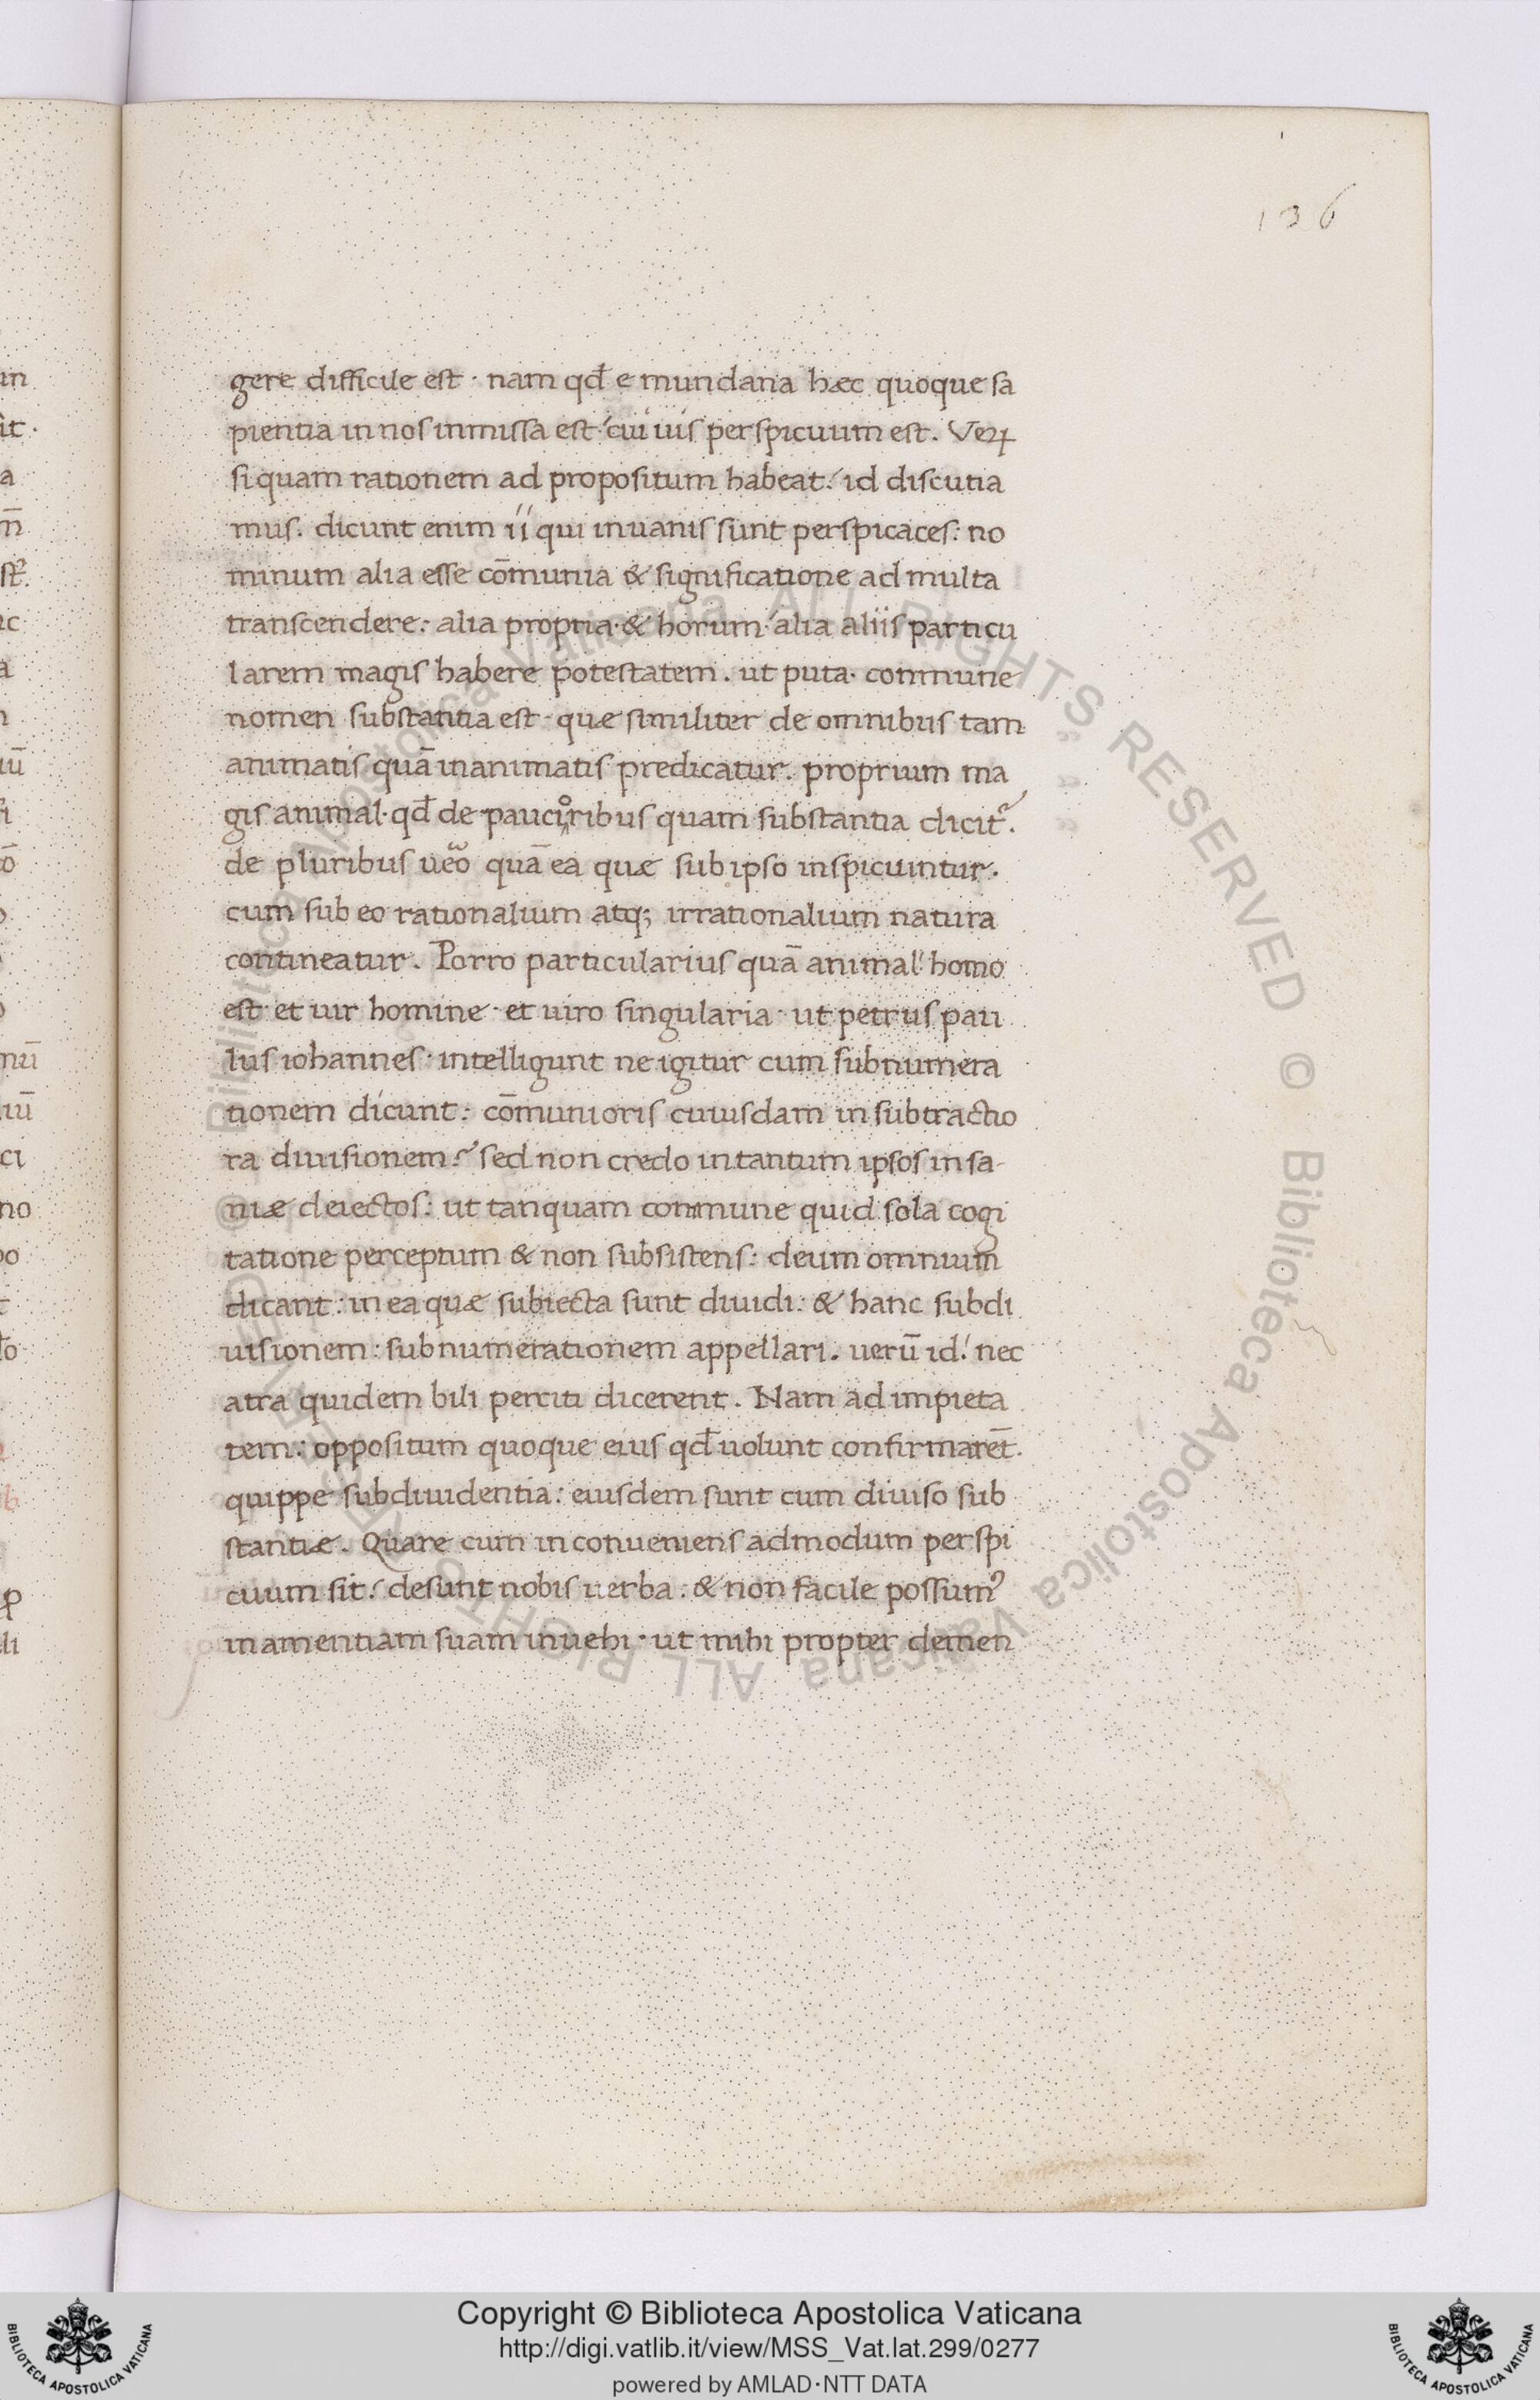 136
gere difficile est · nam qđ e mundana hæc quoque sa
pientia in nos inmissa est: cui uis perspicuum est. Veꝝ
si quam rationem ad propositum habeat: id discutia
mus. dicunt enim ii qui in uanis sunt perspicaces: no
minum alia esse cōmunia & significatione ad multa
transcendere: alia propria · & horum alia aliis particu
larem magis habere potestatem. ut puta · commune
nomen substantia est · quæ similiter de omnibus tam
animatis quā inanimatis predicatur. proprium ma
gis animal · qđ de paucioribus quam substantia dicit᷑.
de pluribus ueo quā ea quæ sub ipso inspiciuntur.
cum sub eo rationalium atq; irrationalium natura
contineatur. Porro particularius quā animal: homo
est · et uir homine · et uiro singularia · ut petrus pau
lus iohannes · intelligunt ne igitur cum subnumera
tionem dicunt: cōmunioris cuiusdam in subtractio
ra diuisionem? sed non credo in tantum ipsos insa-
niæ deiectos: ut tanquam commune quid sola cogi
tatione perceptum & non subsistens: deum omnium
dicant: in ea quæ subiecta sunt diuidi: & hanc subdi
uisionem: subnumerationem appellari. uerū id: nec
atra quidem bili perciti dicerent. Nam ad impieta
tem: oppositum quoque eius qđ uolunt confirmarēt.
quippe subdiuidentia: eiusdem sunt cum diuiso sub
stantiæ. Quare cum inconueniens admodum perspi
cuum sit: desunt nobis uerba: & non facile possumꝰ
in amentiam suam inuehi · ut mihi propter demen
Copyright © Biblioteca Apostolica Vaticana
http://digi.vatlib.it/view/MSS_Vat.lat.299/0277
powered by AMLAD·NTT DATA